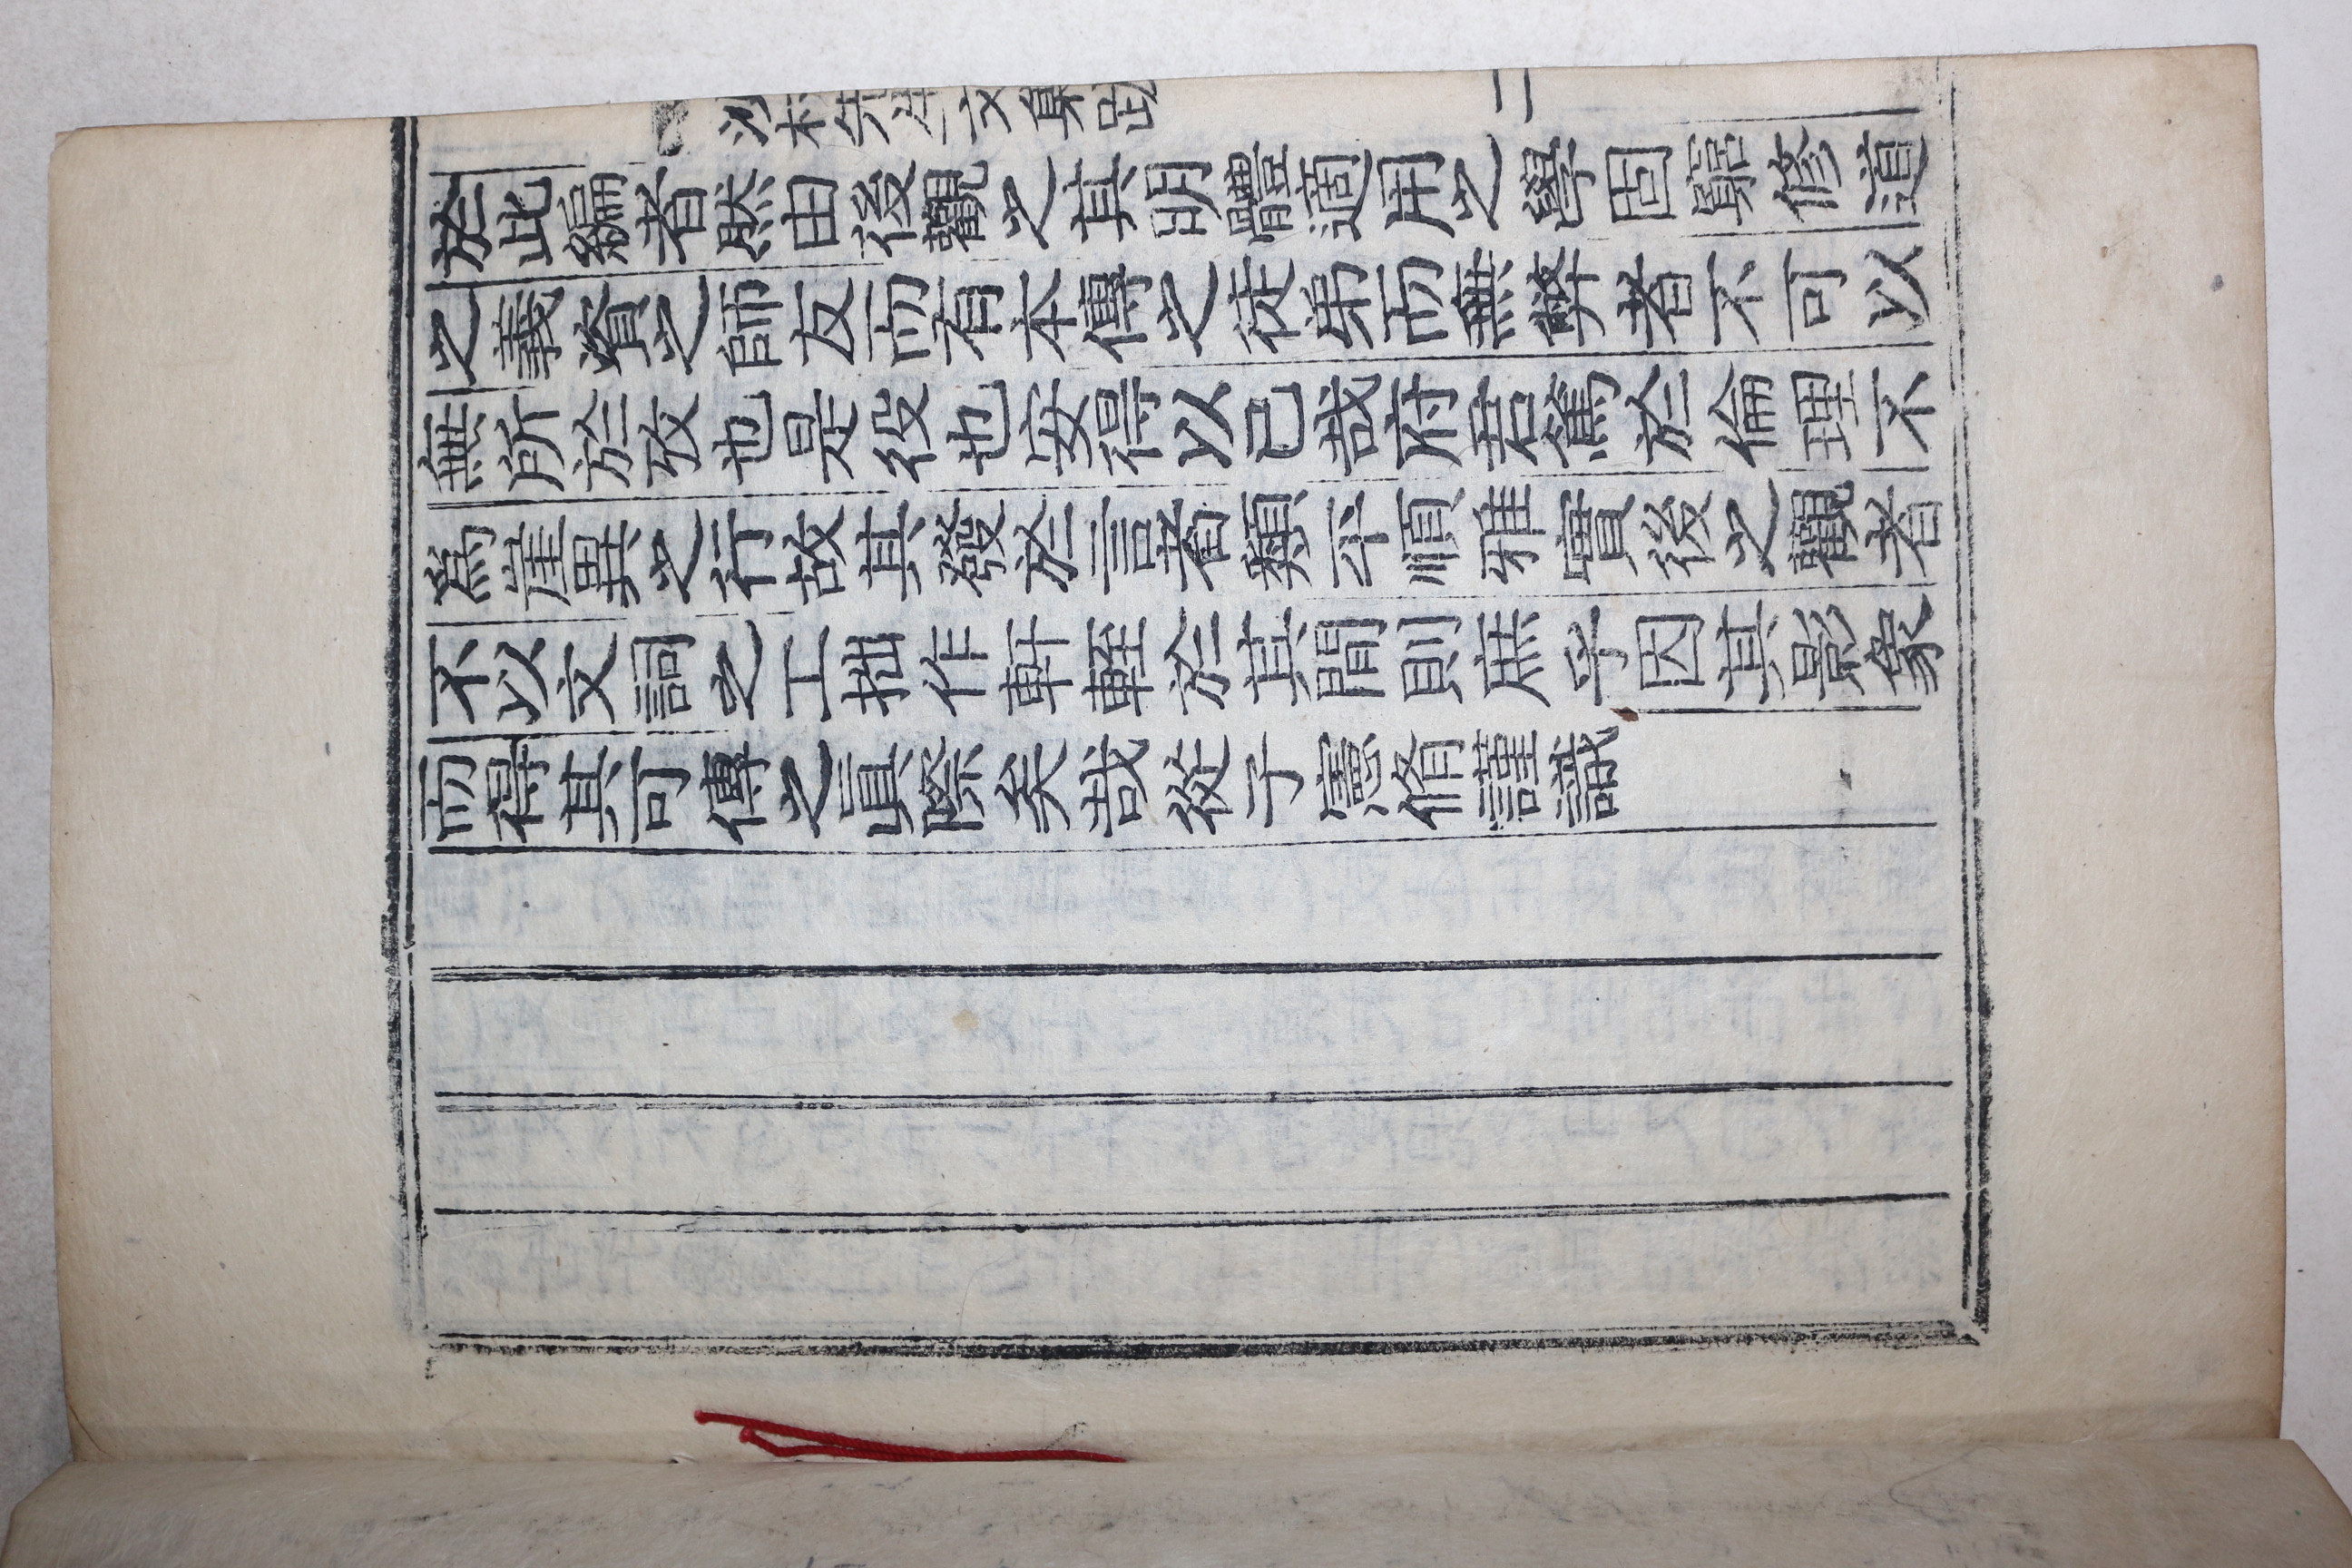 先生文集跋
二
於此編者然由後觀之其明體適用之學固窮修道
之義資之師友而有本傳之從弟而無弊者不可以
無所於攷也是役也安得以已哉府君篤於倫理不
爲崖異之行故其發於言者類平順雅實後之觀者
不以文詞之工拙作軒輊於其間則庶乎因其影象
而得其可傳之眞際矣哉從子憲脩謹識